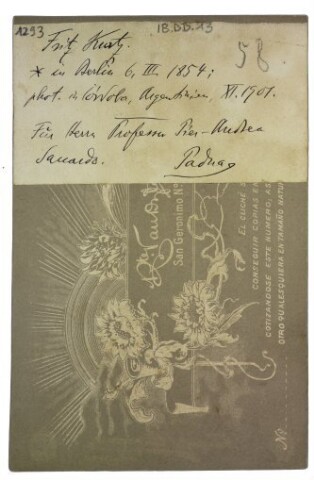 1293
18.DD.13
58
Fritz Kurtz.
* in Berlin 6. III. 1854;
phot. in Córdoba, Argentinien, XI. 1901.
Für Herrn Professor Pier-Andrea
Saccardo. Padua
San Geronimo Nº
EL CLICHÉ S
CONSEGUIR COPIAS EN
COTIZANDOSE ESTE NUMERO, AS
OTRO QUALESQUIERA EN TAMAÑO NATUR
Nº